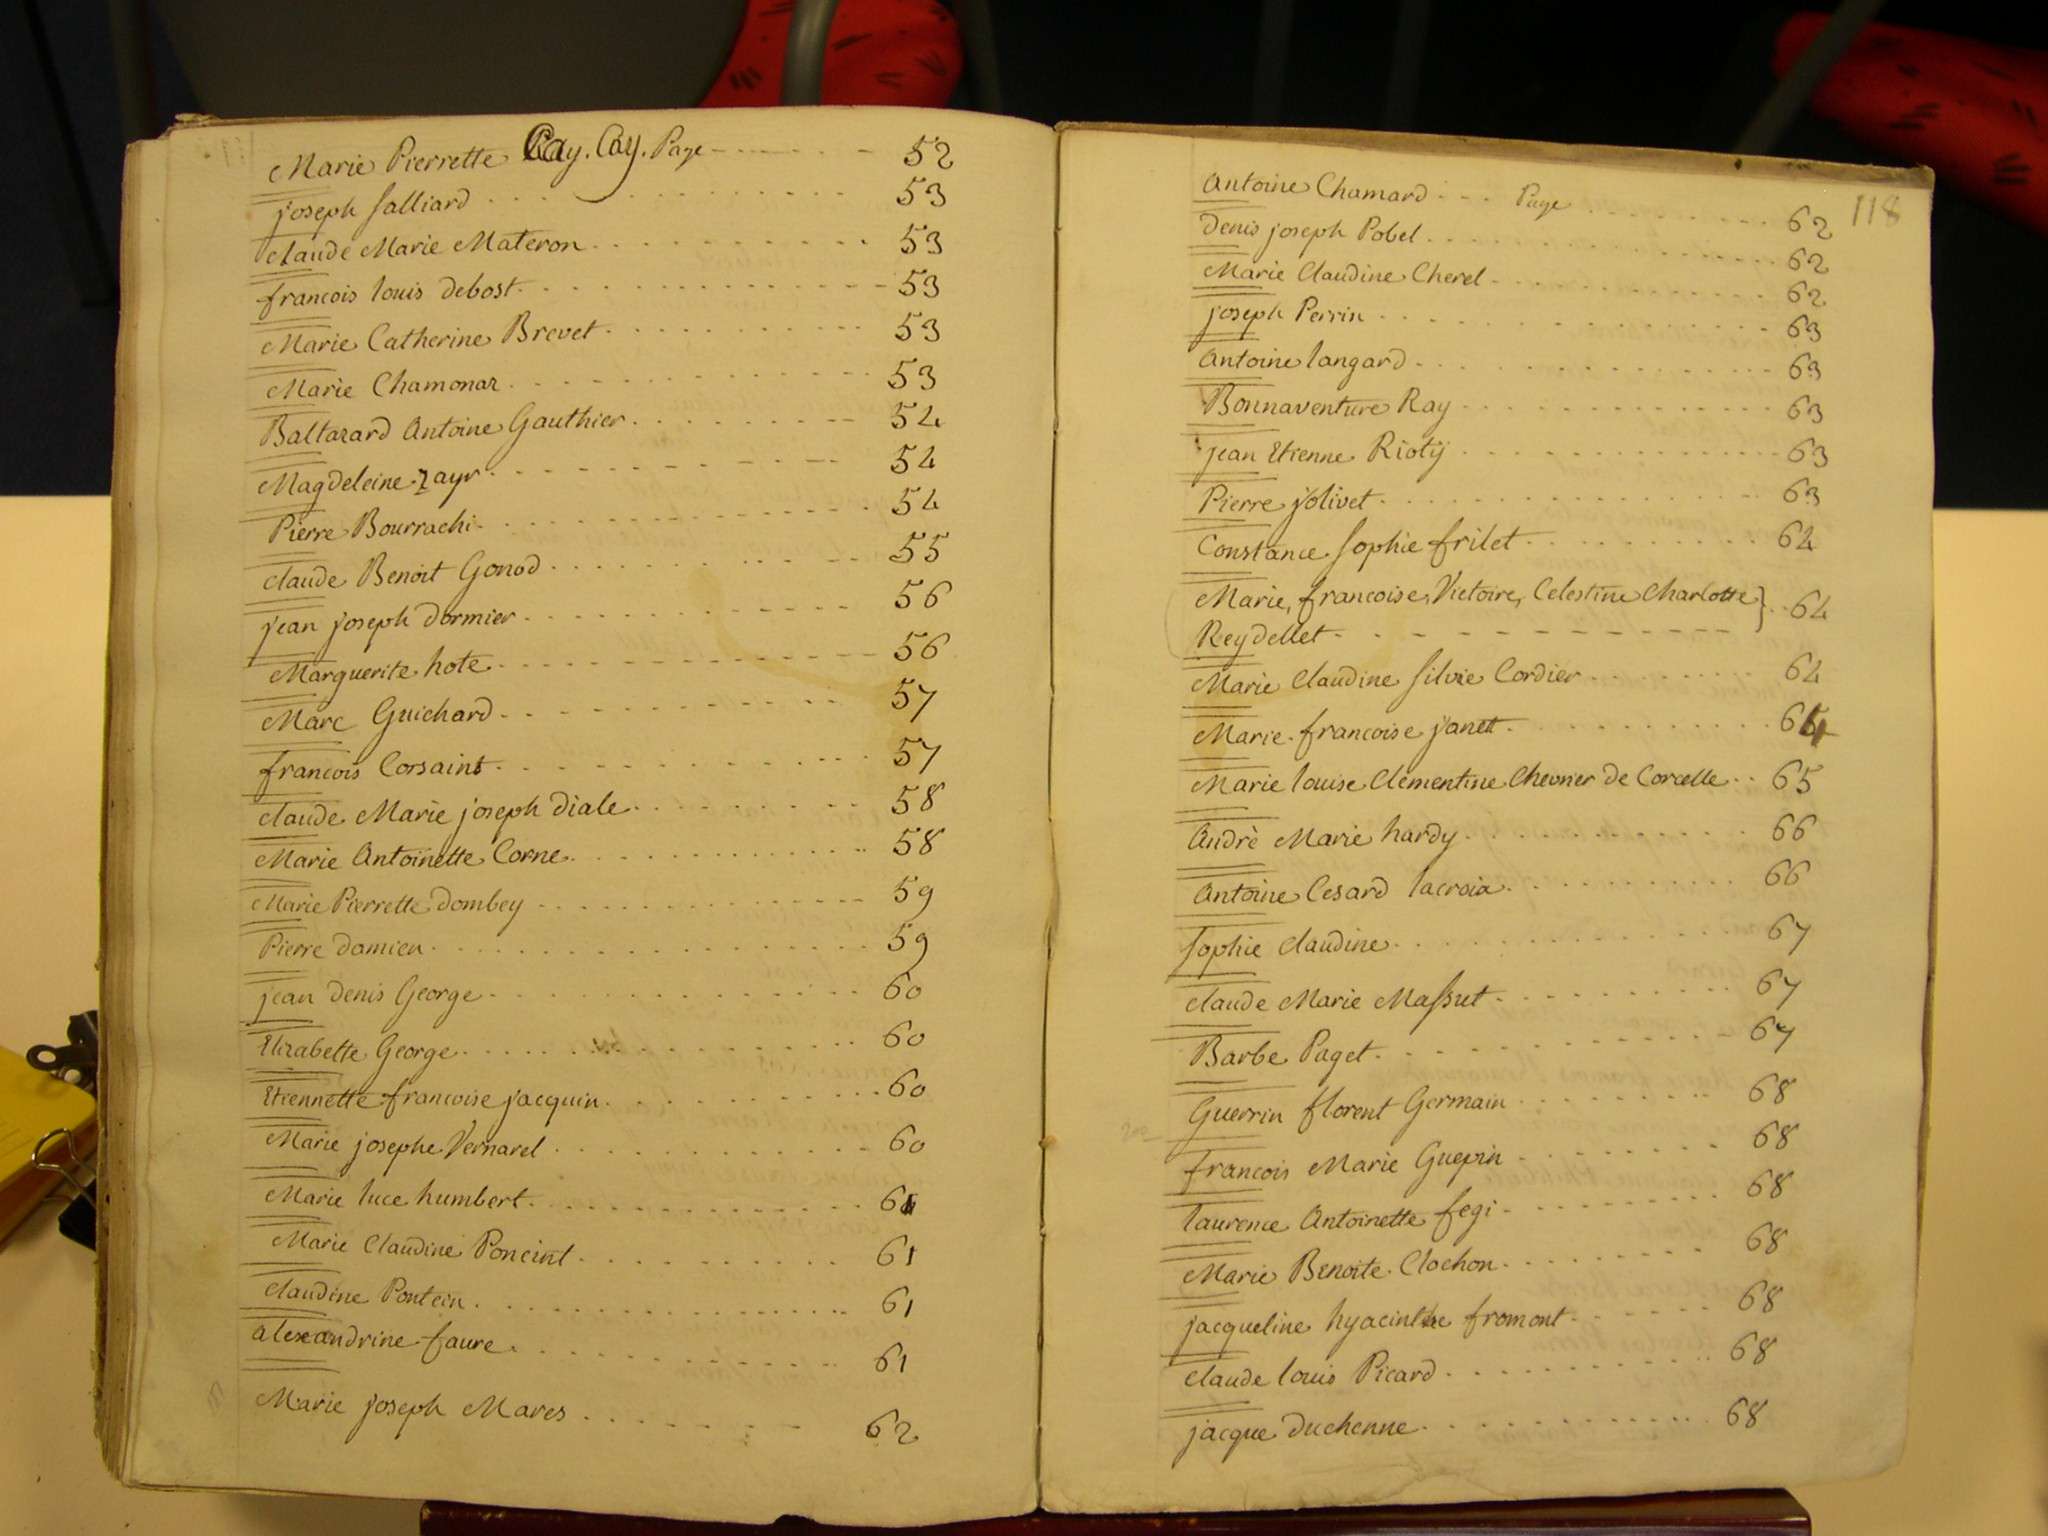 Marie Pierrette Cay. Cay. Page 52
joseph salliard 53
claude Marie Materon 53
francois louis debost 53
Marie Catherine Brevet 53
Marie Chamonaz 53
Baltazard Antoine Gauthier 54
Magdeleine Zayr 54
Pierre Bourrachi 54
claude Benoit Gonod 55
jean joseph dormier 56
Marguerite hote 56
Marc Guichard 57
francois Corsaint 57
claude Marie joseph diale 58
Marie Antoinette Corne 58
Marie Pierrette dombey 59
Pierre damien 59
jean denis George 60
Elizabette George 60
Etiennette francoise jacquin 60
Marie josephe Vernarel 60
Marie luce humbert 61
Marie Claudine Poncint 61
Claudine Pontein 61
alexandrine faure 61
Marie joseph Mares 62
118
Antoine Chamard Page 62
denis joseph Pobel 62
Marie Claudine Cherel 62
joseph Perrin 63
Antoine langard 63
Bonnaventure Ray 63
jean Etienne Riotij 63
Pierre jolivet 63
Constance Sophie frilet 64
Marie, francoise, Victoire, Celestine Charlotte } 64
Reydellet
Marie Claudine silvie Cordier 64
Marie francoise janet 64
Marie louise Clementine Chevrier de Corcelle 65
Andrè Marie hardy 66
Antoine Cesard lacroix 66
Sophie claudine 67
claude Marie Massut 67
Barbe Paget 67
Guerrin florent Germain 68
francois Marie Guepin 68
laurence Antoinette fegi 68
Marie Benoite Clochon 68
jacqueline hyacinthe fromont 68
claude louis Picard 68
jacque duchenne 68